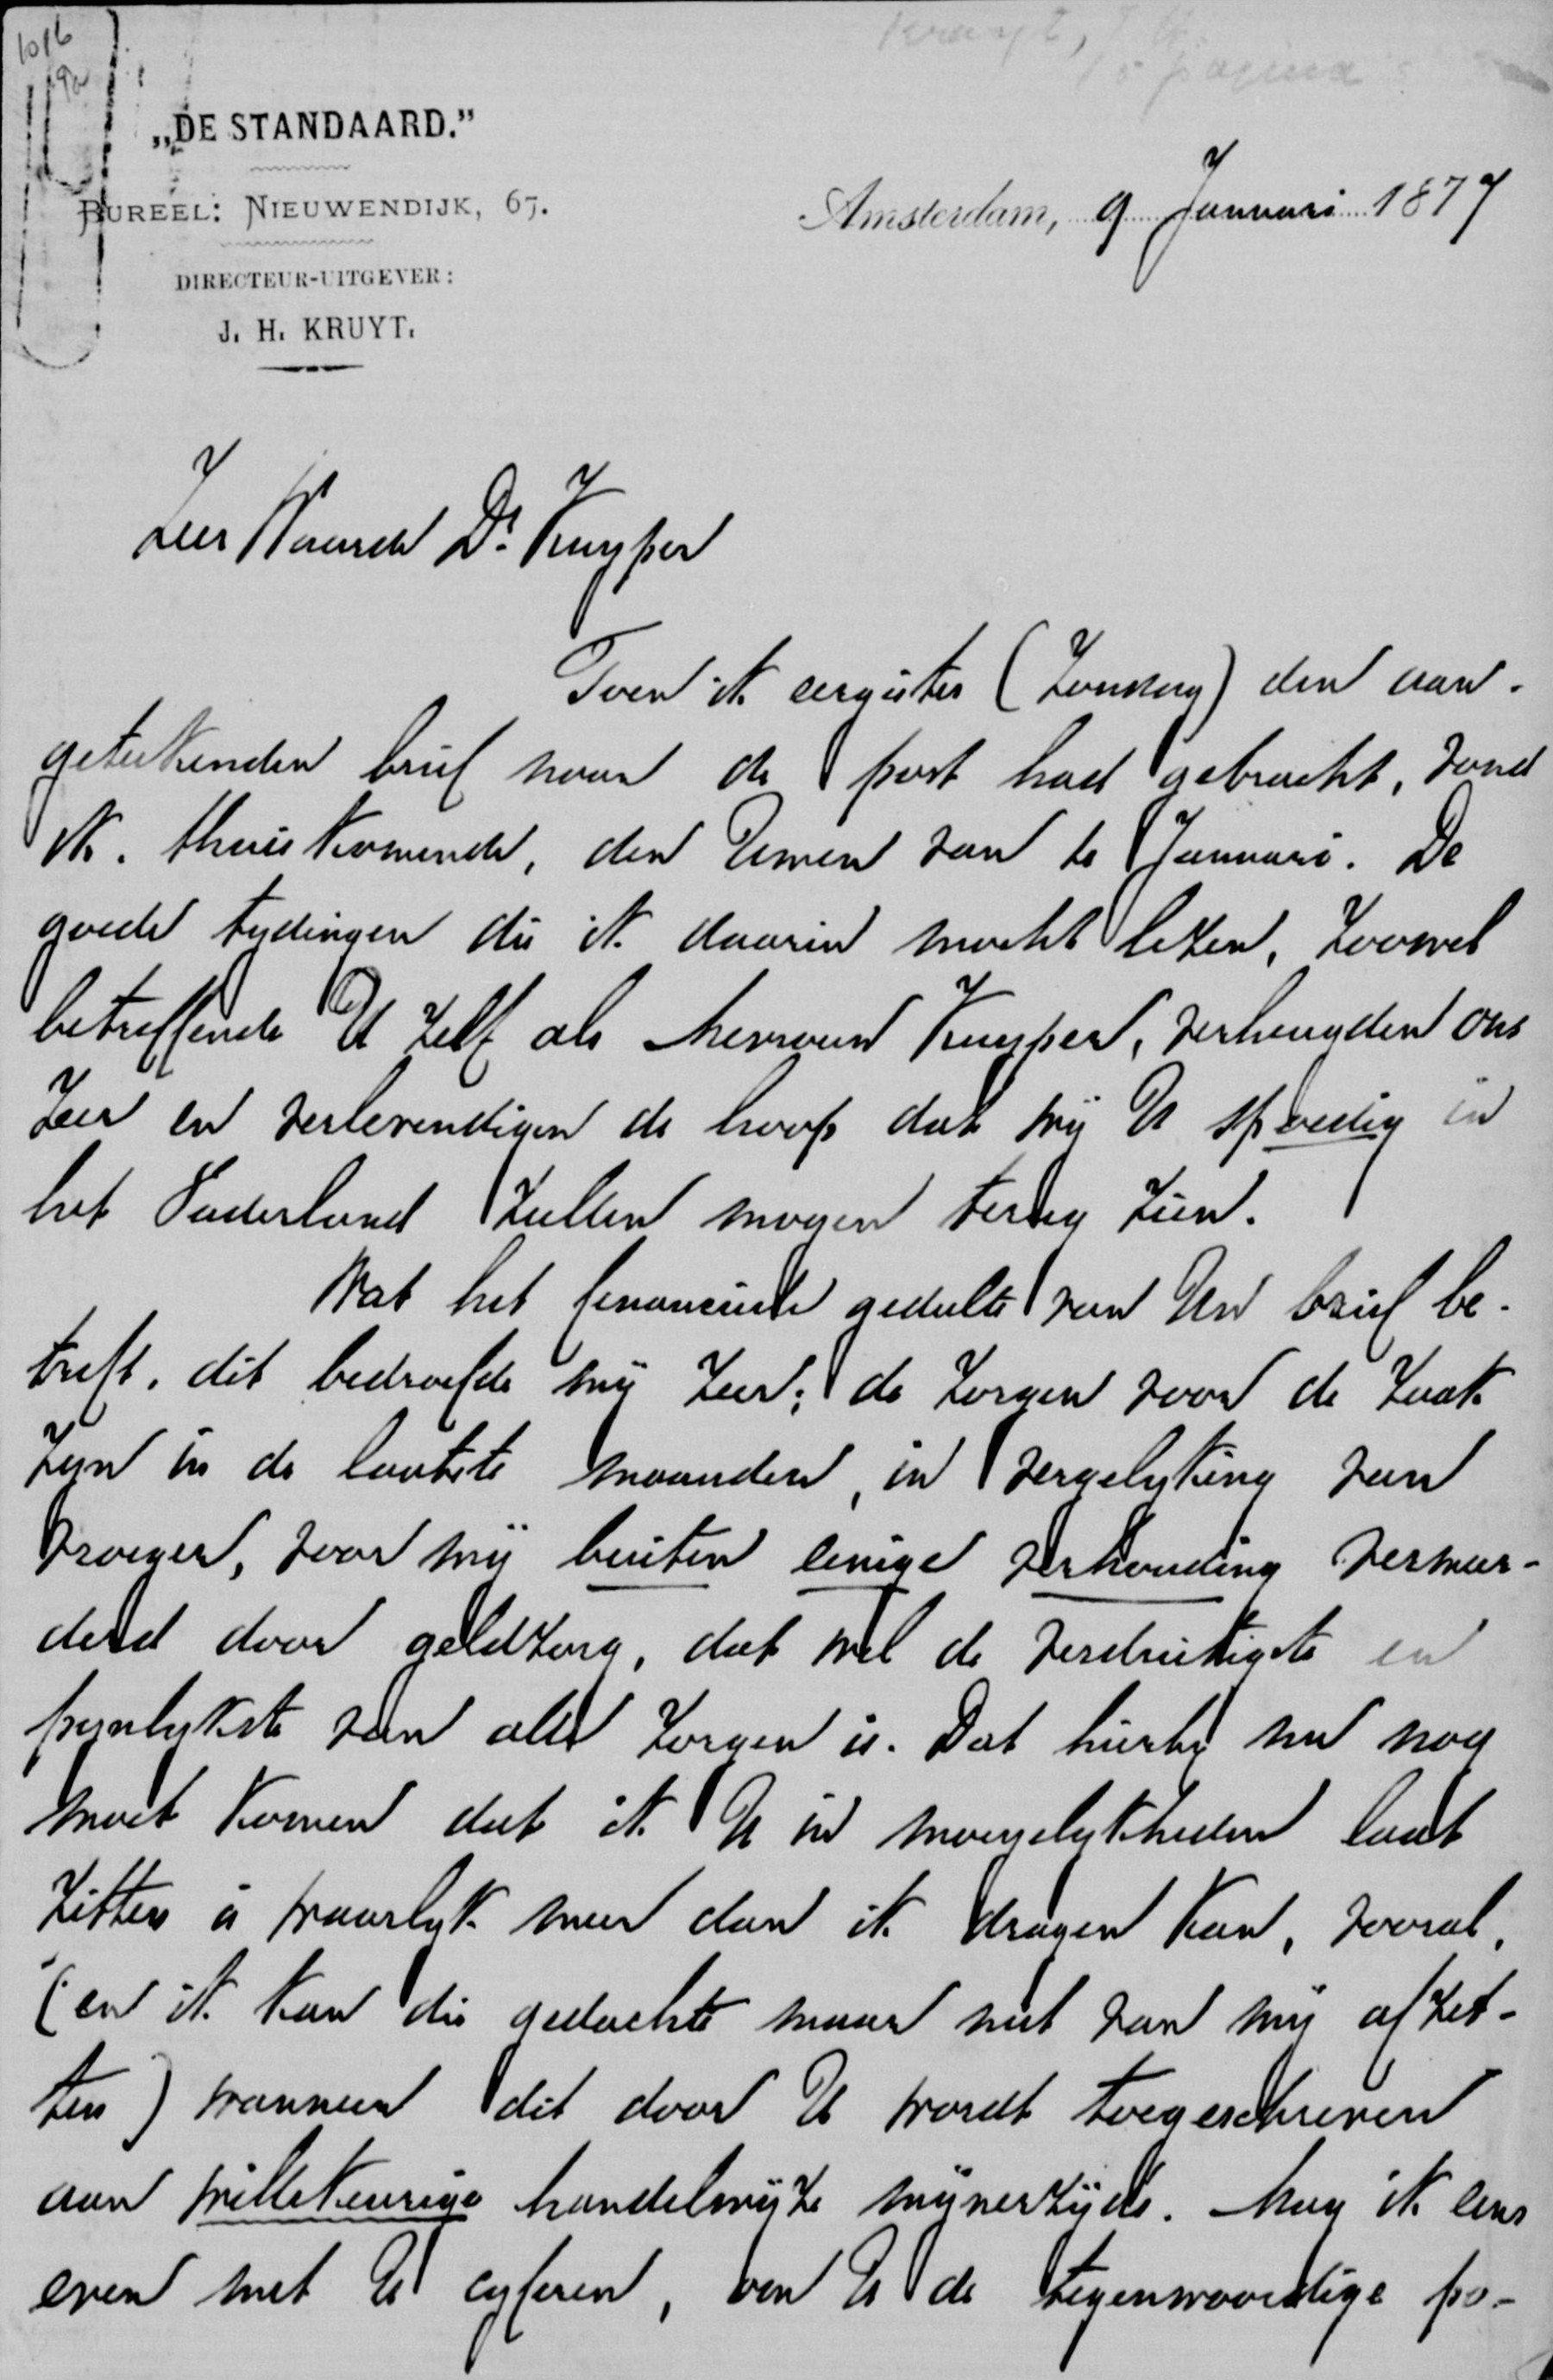 1016
"DE STANDAARD."
BUREEL: NIEUWENDIJK, 67.
DIRECTEUR-UITGEVER:
J. H. KRUYT.
Kruyt, J. H.
pagina's
Amsterdam, 9 Januari 1877
Zeer Waarde Dr. Kuyper
Toen ik eergister (Zondag) den aan-
geteekenden brief naar de post had gebracht, vond
ik. thuiskomende, den Uwen van 2 Januari. De
goede tydingen die ik daarin mocht lezen, zoowel
betreffende U zelf als Mevrouw Kuyper, verheugden ons
zeer en verlevendigen de hoop dat wij U spoedig in
het Vaderland zullen mogen terug zien.
Wat het financieele gedeelte van Uw brief be-
treft, dit bedroefde mij zeer; de zorgen voor de zaak
zyn in de laatste maanden, in vergelyking van
vroeger, voor mij buiten eenige verhouding vermeer-
derd door geldzorg, dat wel de verdrietigste en
pynlykste van alle zorgen is. Dat hierby nu nog
moet komen dat ik U in moeyelykheden laat
zitten is waarlyk meer dan ik dragen kan, vooral,
(en ik kan die gedachte maar niet van mij afzet-
ten) wanneer dit door U wordt toegeschreven
aan willekeurige handelwijze mijnerzijds. Mag ik eens
even met U cyferen, om U de tegenwoordige po-